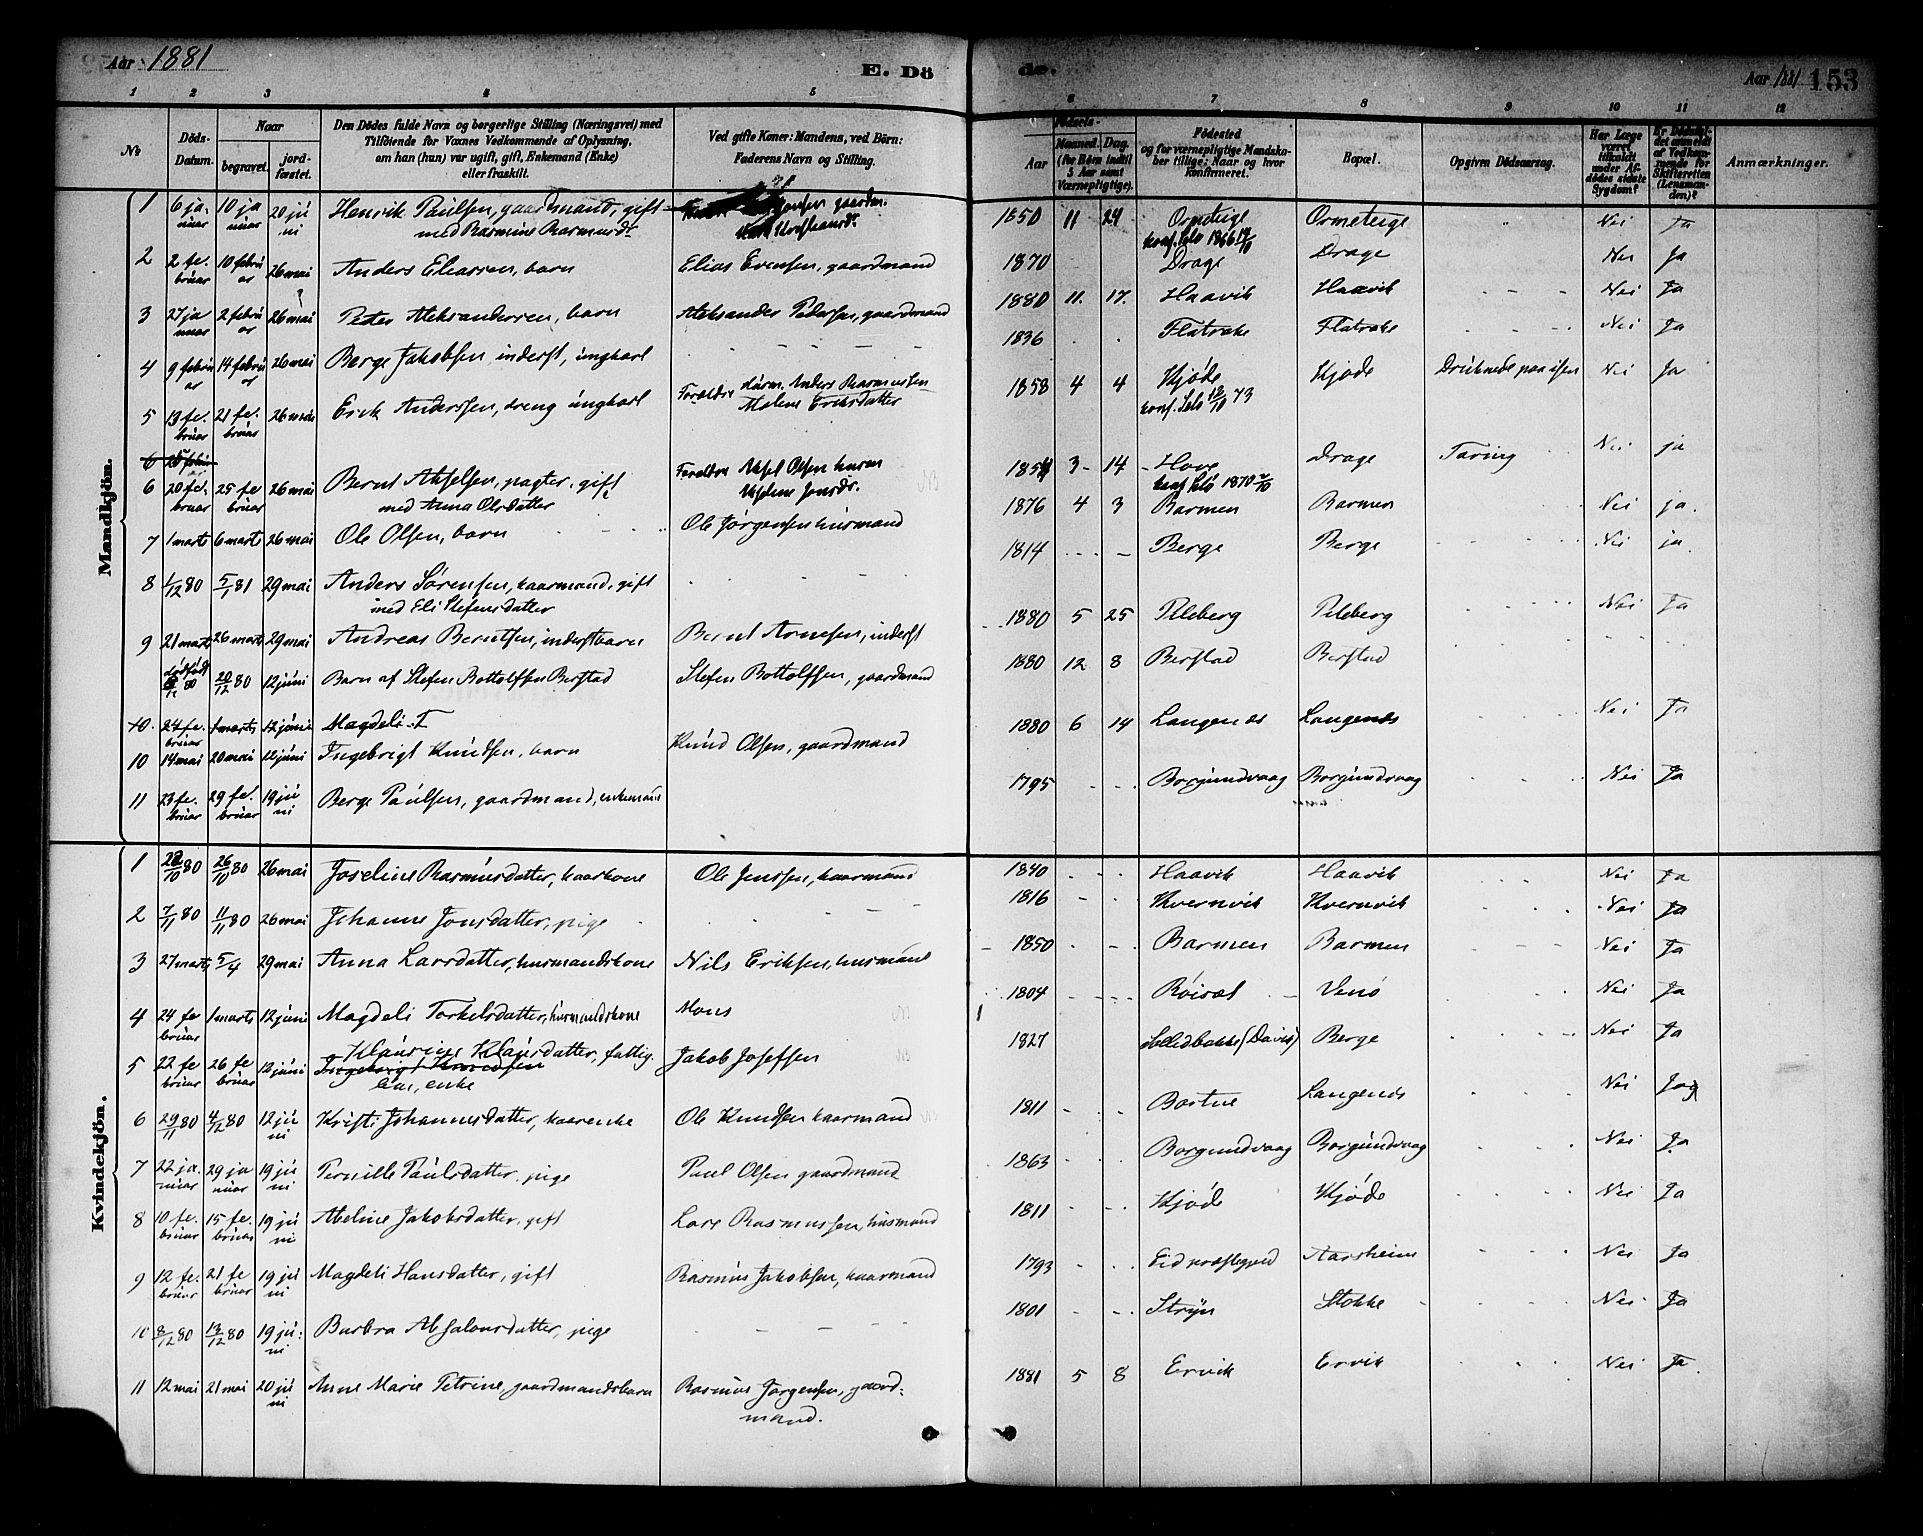 Aar 1881
E. Dö
de.
Aar 1881 153
1 2 3 4 5 6 7 8 9 10 11 12
No
Döds-Datum.
Naar
begravet.
jord-fæstet.
Den Dödes fulde Navn og borgerlige Stilling (Næringsvei) med
Tilföiende for Voxnes Vedkommende af Oplysning,
om han (hun) var ugift, gift, Enkemand (Enke)
eller fraskilt.
Ved gifte Koner: Mandens, ved Börn:
Faderens Navn og Stilling.
Födsels-
Aar
Maaned. Dag.
(for Börn indtil
5 Aar samt
Værnepligtige).
Födested
og for værnepligtige Mandska-
ber tillige: Naar og hvor
konfirmeret.
Bopæl.
Opgiven Dödsaarsag.
Har Læge
været
tilkaldt
under Af-
dödes sidste
Sygdom?
Er Dödsfal-
det anmeldt
af Vedkom-
mende for
Skifteretten
(Lensman-
den)?
Anmærkninger.
Mandkjön.
1 6 januar 10 januar 20 juni Henrik Paulsen, gaardmand, gift med Rasmine Rasmusdr 1850 11 24 Ormeteige konf. Selø 1866 Ormeteige Nei Ja
2 2 februar 10 februar 26 mai Anders Eliassen, barn Elias Evensen, gaardmand 1870 Drage Drage Nei Ja
3 27 januar 2 februar 26 mai Peter Aleksandersen, barn Aleksander Pedersen, gaardmand 1880 11. 17. Haavik Haavik Nei Ja
4 9 februar 14 februar 26 mai Berge Jakobsen inderst, ungkarl 1836 Flatrake Flatrake Nei Ja
5 13 februar 21 februar 26 mai Erik Anderssen, dreng ungkarl Forældre husm. Anders Rasmussen Malene Eriksdatter 1858 4 4 Kjøde konf. Selø 73 Kjøde Druknede paa isen Nei Ja
6 20 februar 25 februar 26 mai Bernt Akselsen, pagter, gift med Anna Olsdatter Forældre Aksel Olsen husm 3 14 Hove konf. Selø 1870 Drage Tæring Nei ja
7 1 marts 6 marts 26 mai Ole Olsen, barn Ole Jørgensen husmand 1876 4 3 Barmen Barmen Nei ja.
8 1/12 80 5/1 81 29 mai Anders Sørensen, kaarmand, gift med Eli Stefensdatter 1814 Berge Berge Nei ja.
9 21 marts 26 marts 29 mai Andreas Berntsen, inderstbarn Bernt Arnesen, inderst 1880 5 25 Peleberg Peleberg Nei Ja
dødfødt 80 20/12 80 12 juni Barn af Stefen Bottolfsen Berstad Stefen Bottolfsen, gaardmand 1880 12 8 Berstad Berstad
10. 24 februar 1 marts 12 juni Magdeli T
10 14 mai 20 mai 12 juni Ingebrigt Knudsen, barn Knud Olsen, gaardmand 1880 6 14 Langenes Langenes Nei Ja
11 23 februar 29 februar 19 juni Berge Paulsen, gaardmand, enkemand 1795 Borgundvaag Borgundvaag Nei Ja
Kvindekjön.
1 80 26/10 80 26 mai Joseline Rasmusdatter, kaarkone Ole Jenssen, kaarmand 1840 Haavik Haavik Nei Ja
2 7/11 80 11/11 80 26 mai Johanne Jonsdatter, pige 1816 Kvernvik Kvernvik Nei Ja
3 27 marts 5/4 29 mai Anna Larsdatter, husmandskone Nils Eriksen, husmand 1850 Barmen Barmen Nei Ja
4 24 februar 1 marts 12 juni Magdeli Torkelsdatter, husmandskone Mons 1804 Røiset Venø Nei Ja
5 22 februar 26 februar 12 juni Klausine Klausdatter, fattiglem, enke Jakob Josefsen 1827 (Davik) Berge Nei Ja
6 29/11 80 4/12 80 12 juni Kristi Johannesdatter, kaarenke Ole Knudsen kaarmand 1811 Bortne Langenes Nei Ja
7 22 januar 29 januar 19 juni Pernille Paulsdatter, pige Paul Olsen gaardmand 1863 Borgundvaag Borgundvaag Nei Ja
8 10 februar 15 februar 19 juni Abeline Jakobsdatter, gift Lars Rasmussen, husmand 1811 Kjøde Kjøde Nei Ja
9 12 februar 21 februar 19 juni Magdeli Hansdatter, gift Rasmus Jakobsen, kaarmand 1793 Eid præstegjeld Aarsheim Nei Ja
10 8/12 80 13/12 80 19 juni Barbra Absalonsdatter, pige 1801 Stryn Stokke Nei Ja
11 12 mai 21 mai 20 juni Anne Marie Petrine, gaardmandsbarn Rasmus Jørgensen, gaardmand. 1881 5 8 Ervik Ervik Nei Ja